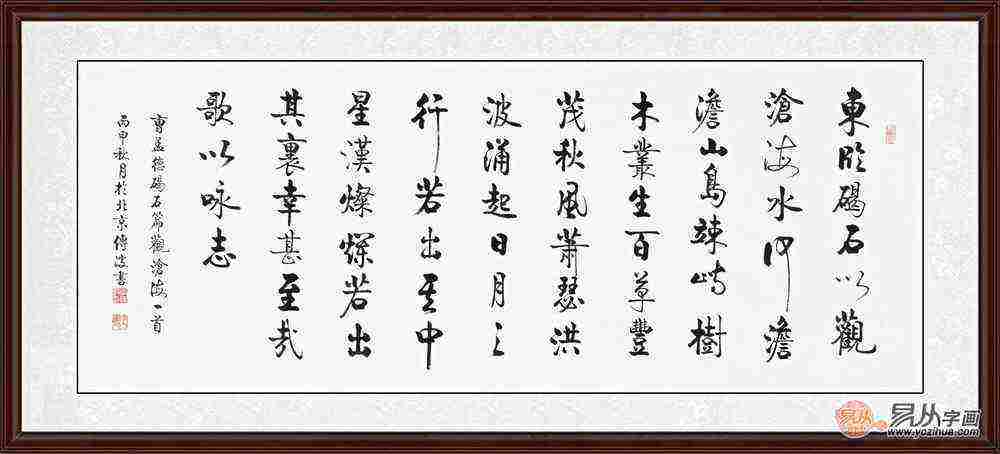 東臨碣石以觀
滄海水何澹
澹山島竦峙樹
木叢生百草豐
茂秋風蕭瑟洪
波涌起日月之
行若出其中
星漢燦爛若出
其裏幸甚至哉
歌以咏志
曹孟德碣石篇觀滄海一首
丙申秋月於北京書
易从
易从字画
www.yczihua.com